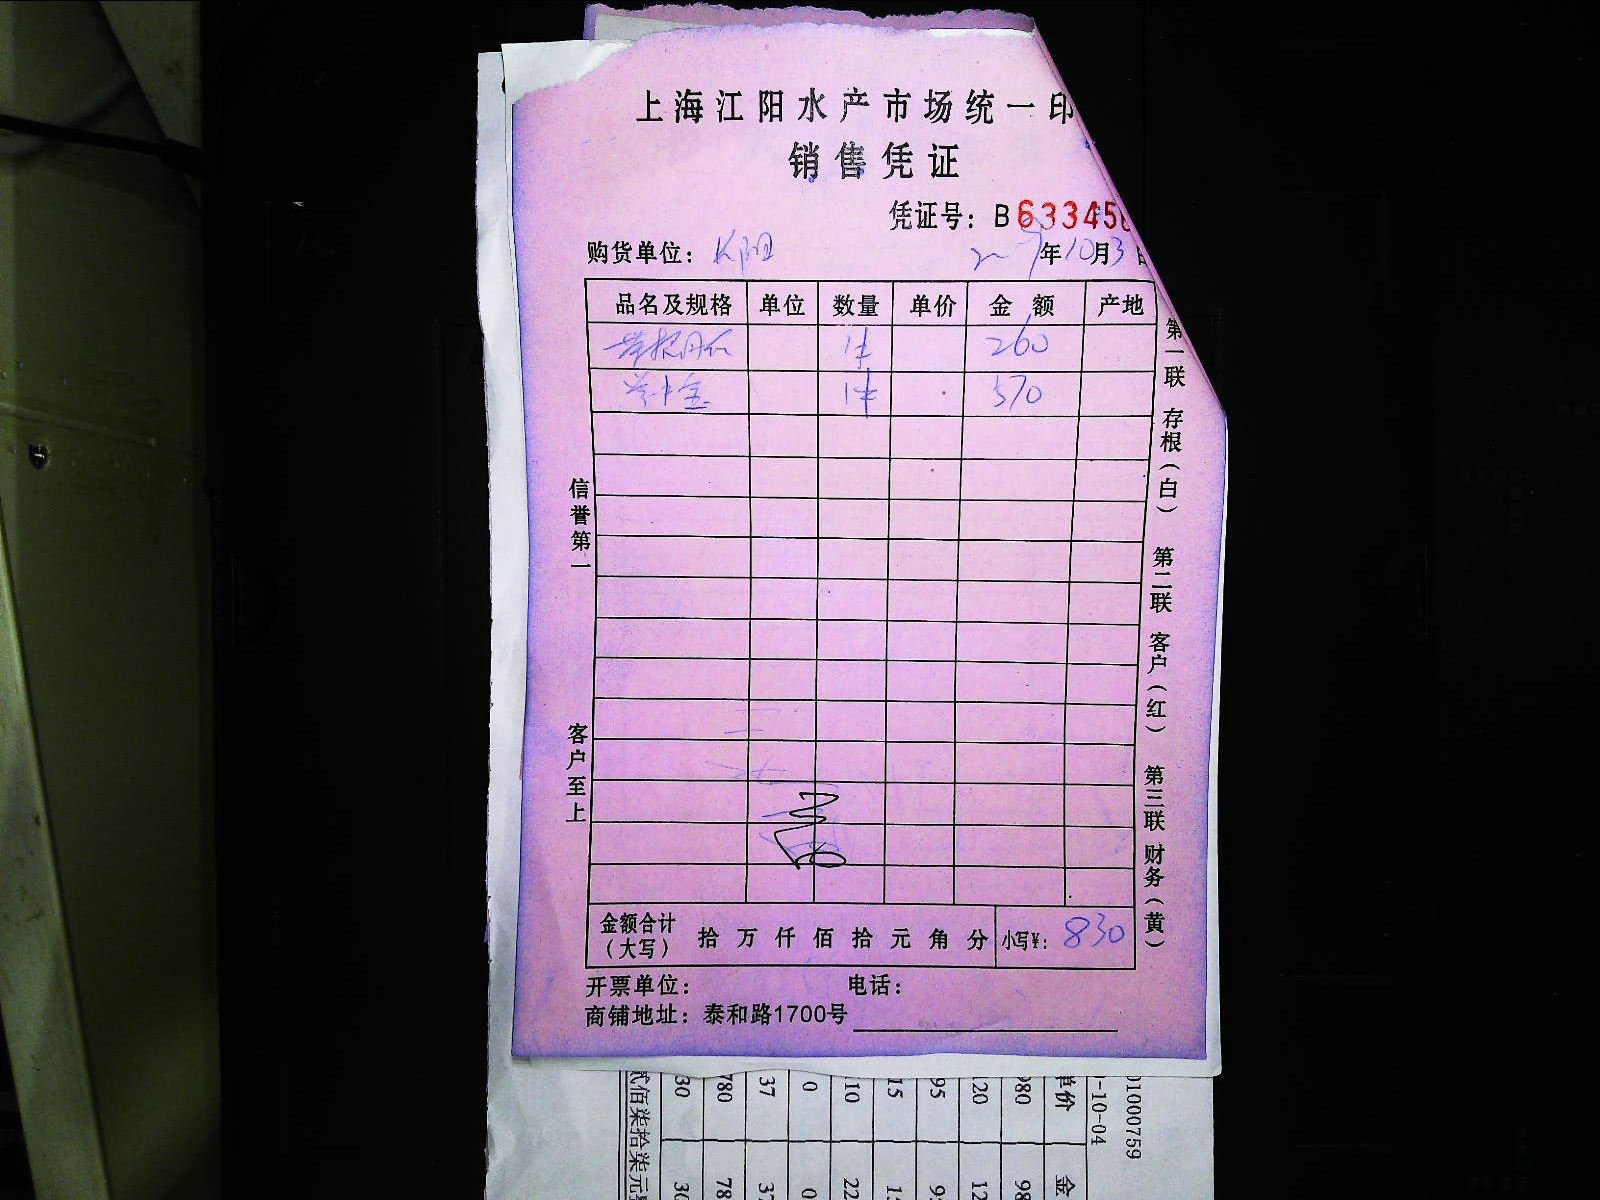 上海江阳水产市场统一印
销售凭证
凭证号：B 63345
购货单位：长阳 年10月3日
品名及规格 单位 数量 单价 金额 产地
1件 260
1件 570
信誉第一
客户至上
第一联 存根（白） 第二联 客户（红） 第三联 财务（黄）
金额合计（大写） 拾 万 仟 佰 拾 元 角 分 小写¥：830
开票单位： 电话：
商铺地址：泰和路1700号
01000759
-10-04
单价 金
980 98
120 12
95 9
15 1
110 22
0 0
37 37
780 78
30 30
贰佰柒拾柒元